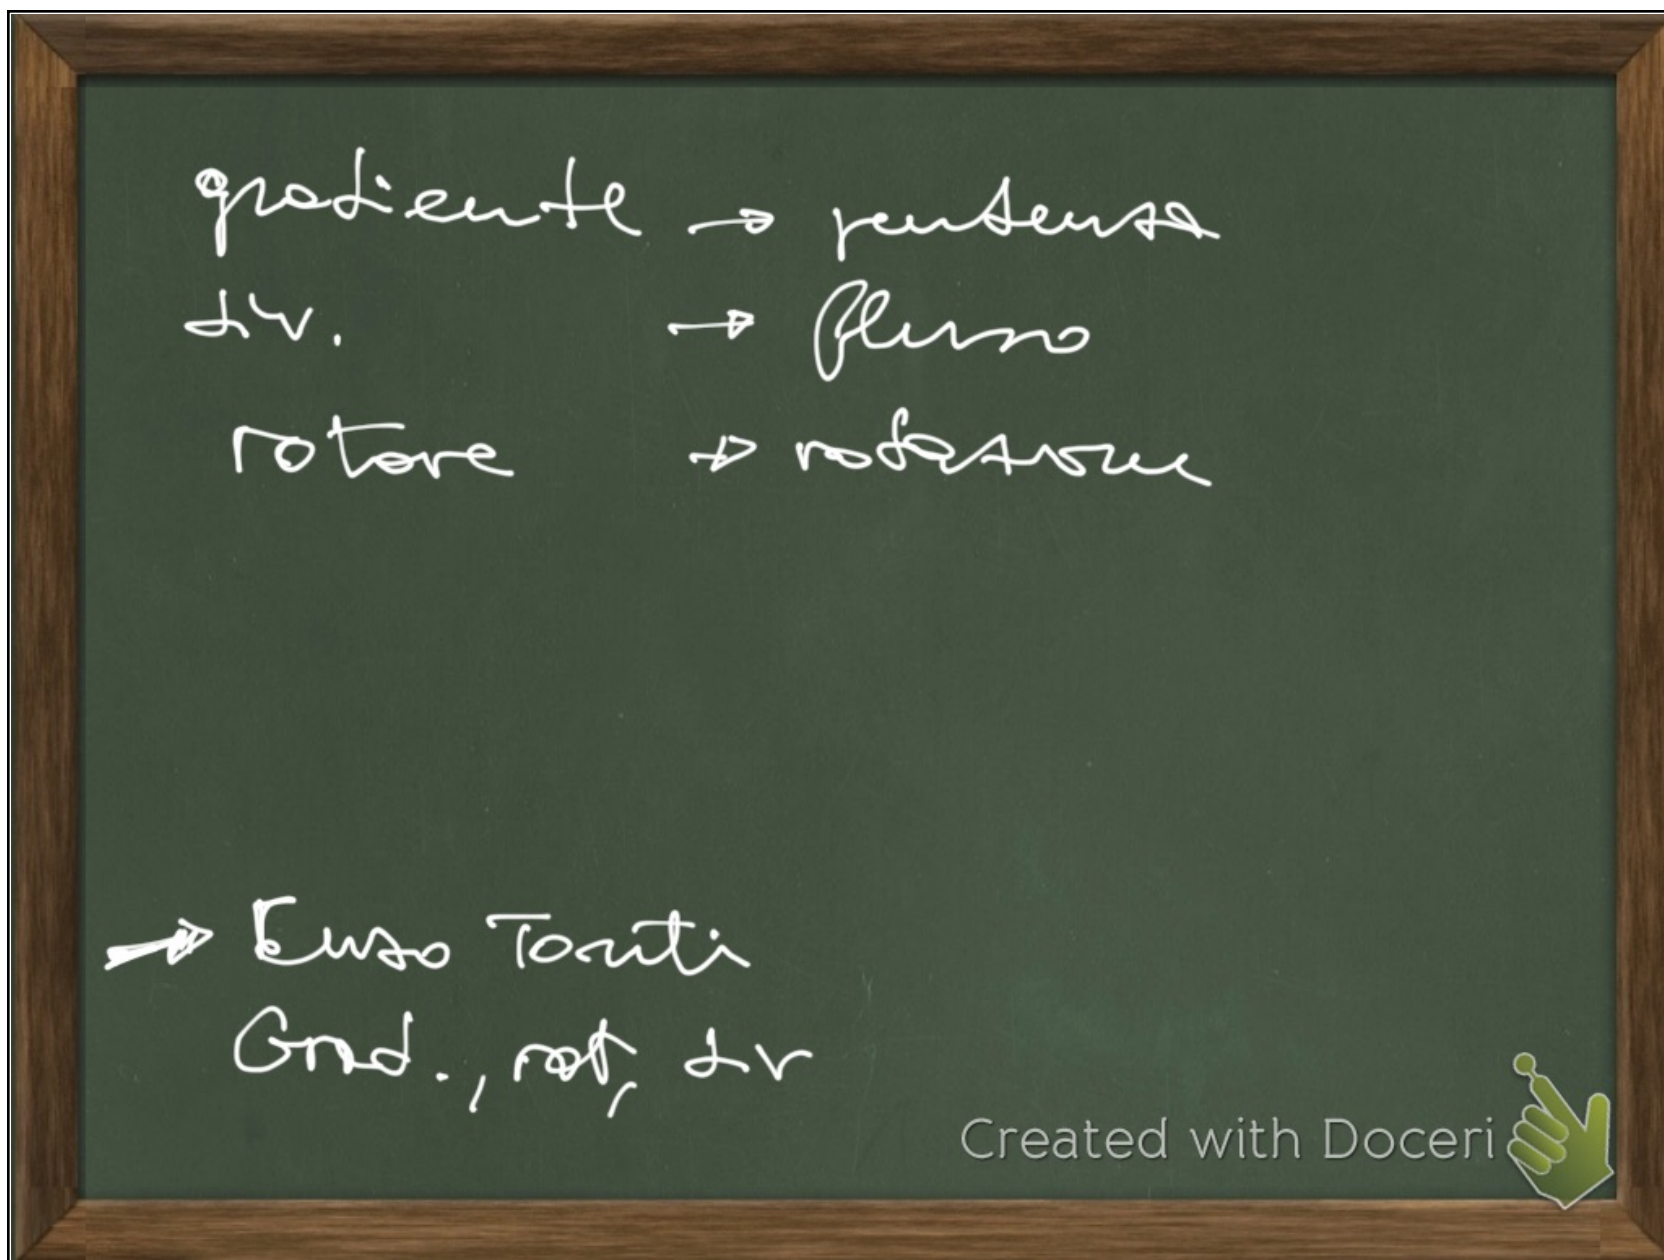 gradiente → pendenza
div. → flusso
rotore → rotazione
→ Enzo Tonti
Grad., rot, div
Created with Doceri